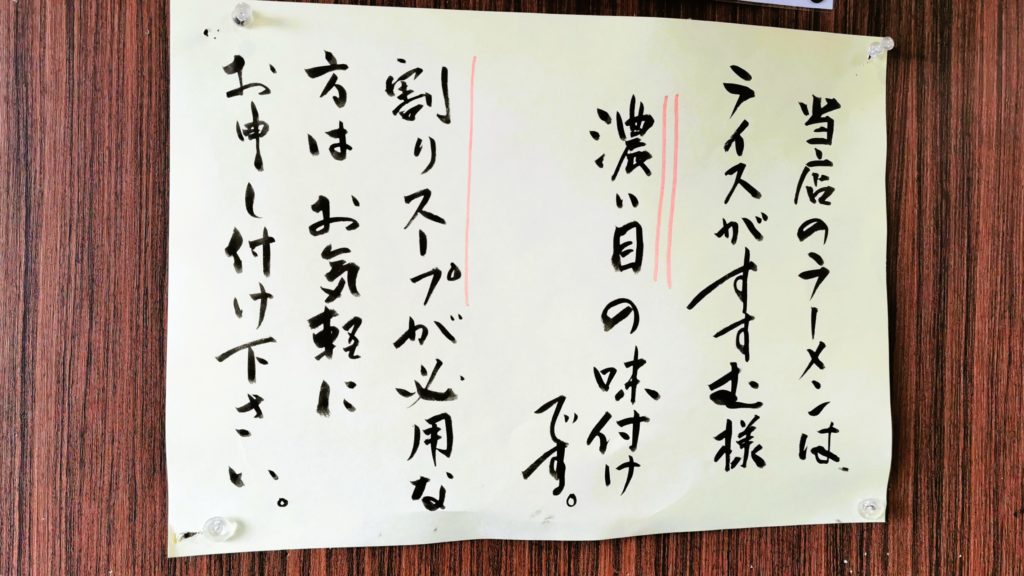 当店のラーメンは、
ライスがすすむ様
濃い目の味付け
です。
割りスープが必用な
方はお気軽に
お申し付け下さい。